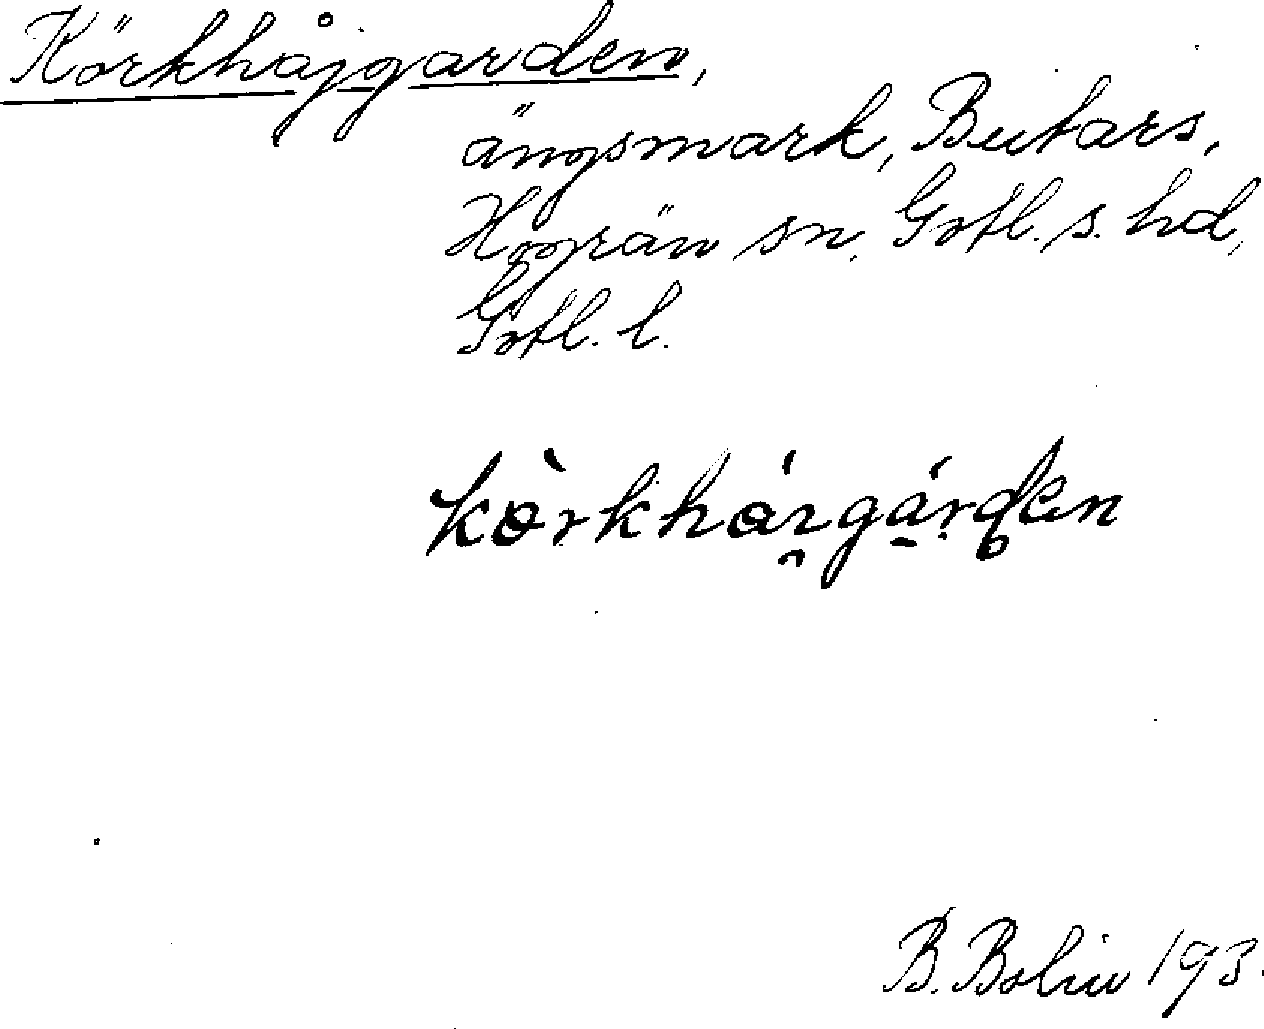 Körkhåjgarden,
ängsmark, Butars,
Hogrän sn, Gotl. s. hd,
Gotl. l.
B. Bolin 193.